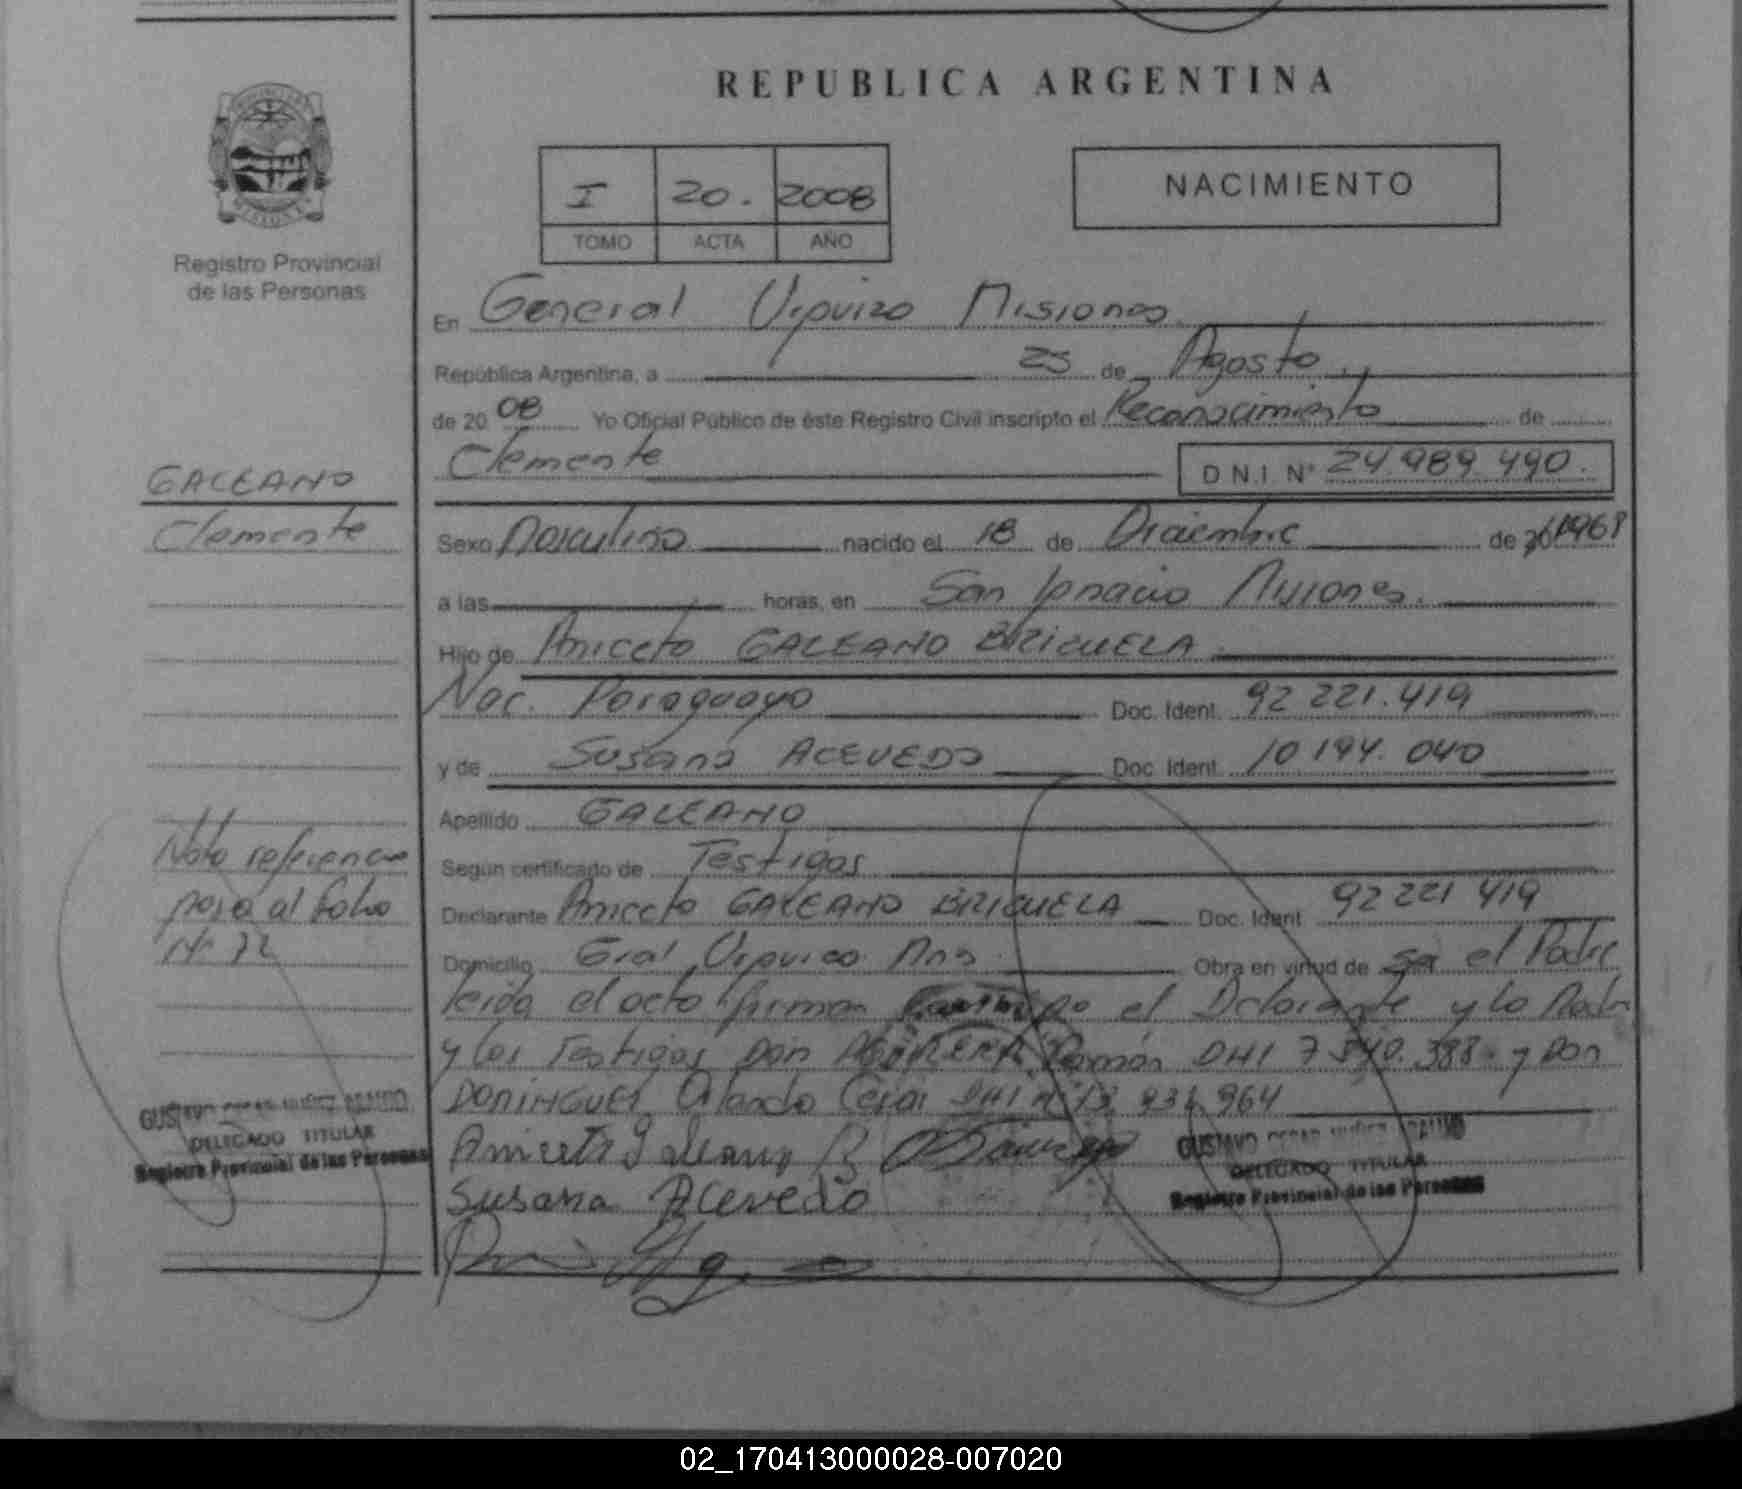 REPUBLICA ARGENTINA
I 20. 2008
TOMO ACTA AÑO
NACIMIENTO
Registro Provincial
de las Personas
En General Urquiza Misiones
República Argentina, a 25 de Agosto
de 20 08 Yo Oficial Público de éste Registro Civil inscripto el Reconocimiento de
Clemente D.N.I. Nº 24.989.490.
GALEANO
Clemente
Sexo Masculino nacido el 18 de Diciembre de 1968
a las horas, en San Ignacio Misiones.
Hijo de Aniceto GALEANO BRIZUELA
Nac. Paraguayo Doc. Ident. 92 221.419
y de Susana ACEVEDO Doc. Ident. 10 194.040
Apellido GALEANO
Según certificado de Testigos
Declarante Aniceto GALEANO BRIZUELA Doc. Ident. 92 221 419
Domicilio Gral Urquiza Mns. Obra en virtud de ser el Padre
leida el acta firman el Declarante y la Madre
y los Testigos Don Ramón DNI 7 540.388 y Don
DOMINGUEZ Orlando Cesar DNI Nº 13
Nota referencia
pasa al folio
Nº 72
GUSTAVO CESAR NUÑEZ
DELEGADO TITULAR
Registro Provincial de las Personas
Aniceto Galeano B
Susana Acevedo
GUSTAVO CESAR NUÑEZ
DELEGADO TITULAR
Registro Provincial de las Personas
02_170413000028-007020